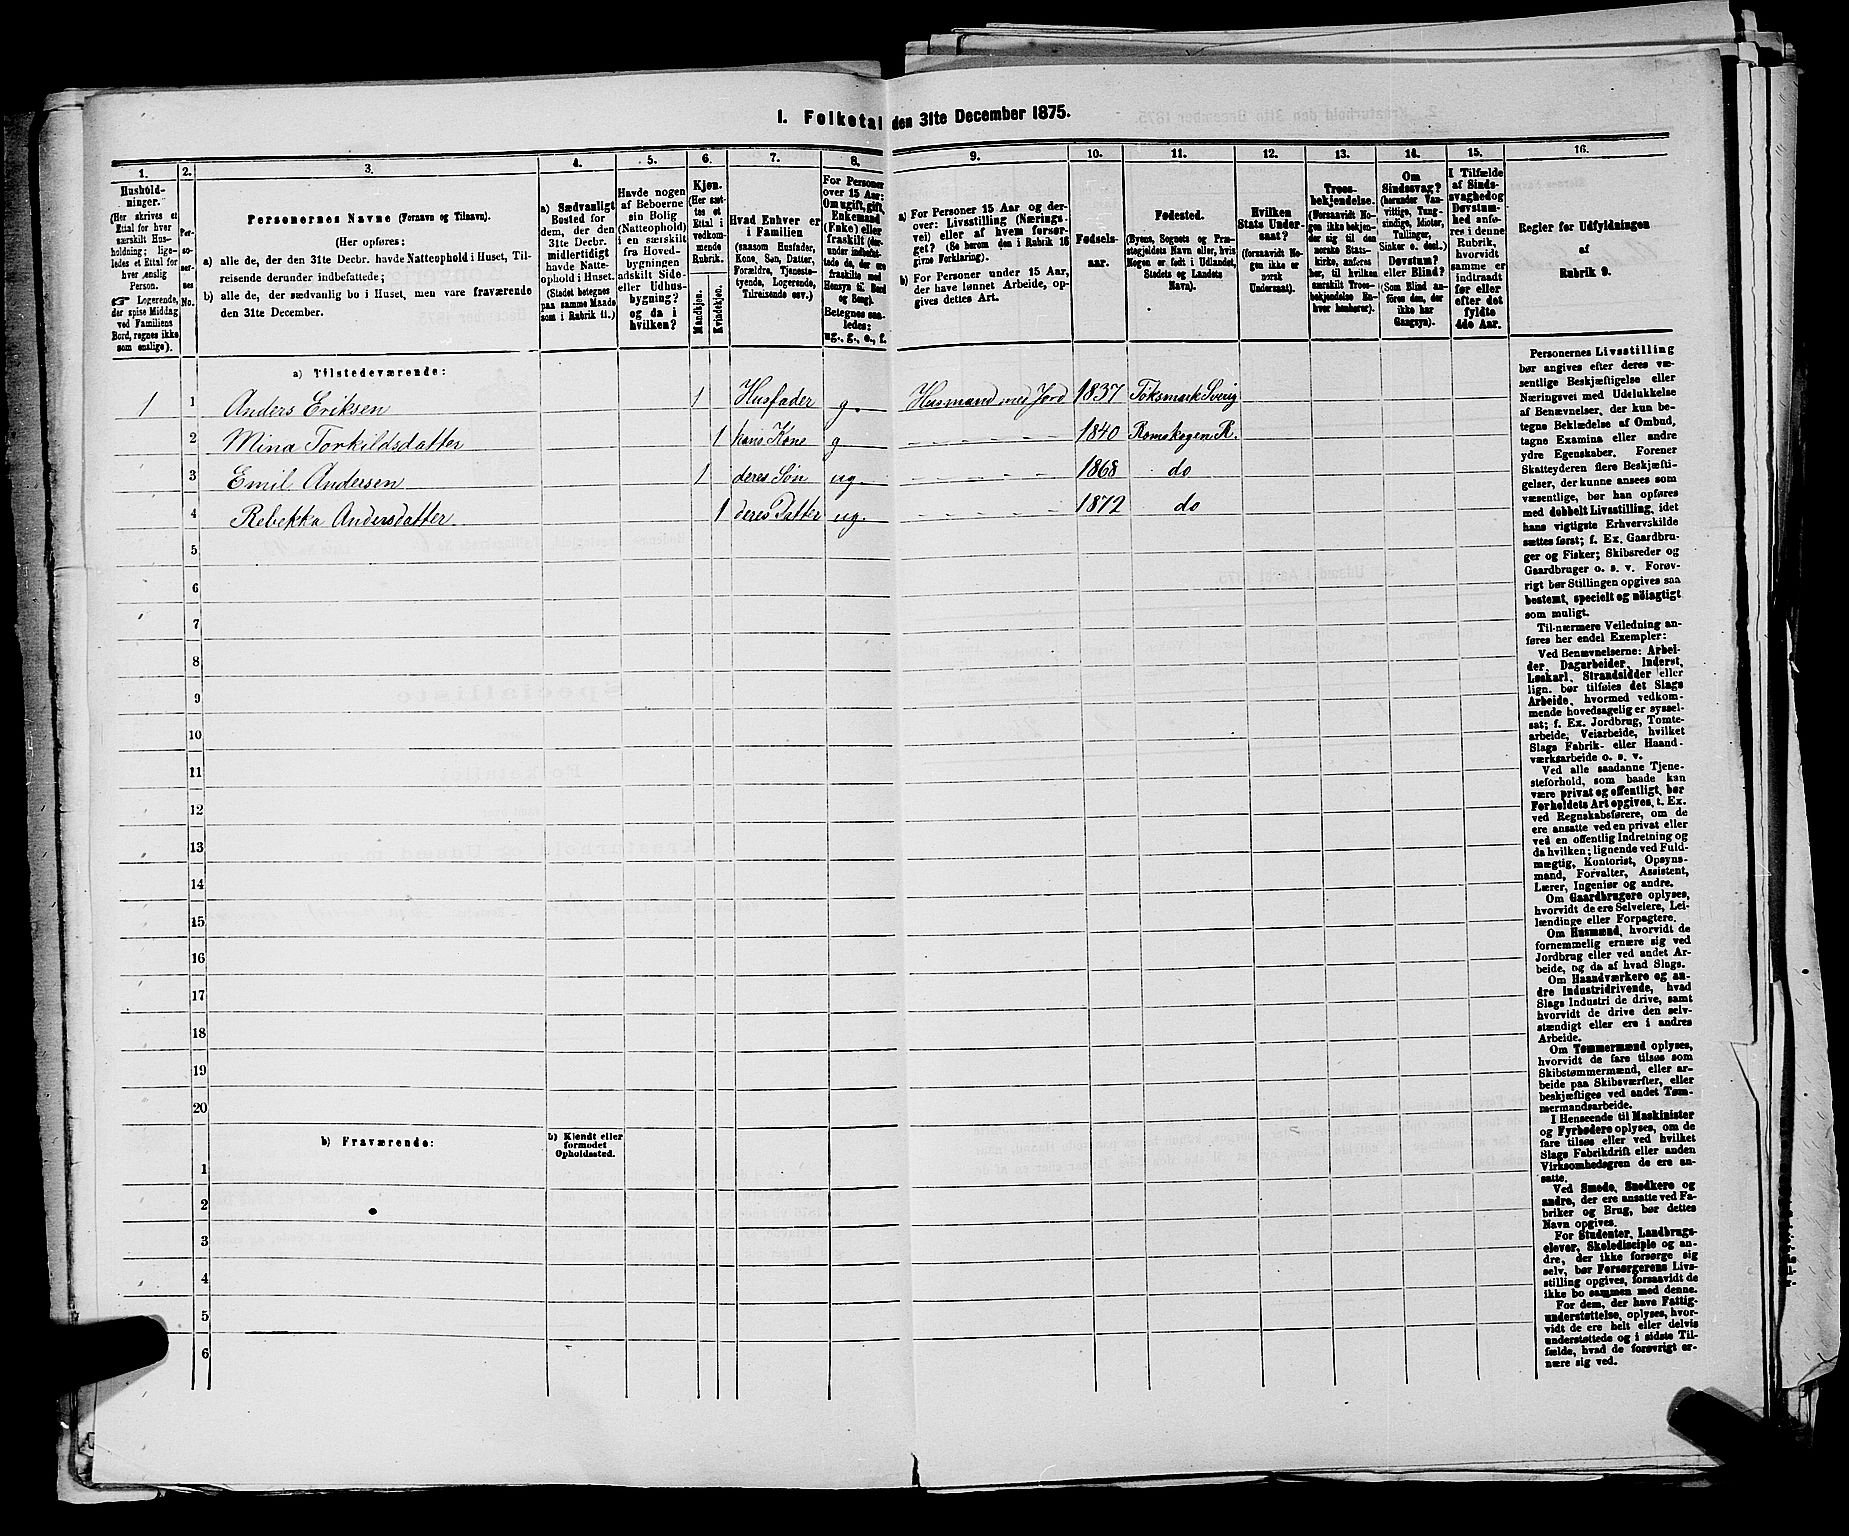 I. Folketal den 31te December 1875.
1.
Hushold-
ninger.
(Her skrives et
Ettal for hver
særskilt Hus-
holdning; lige-
ledes et Ettal for
hver enslig
Person.
☞ Logerende,
der spise Middag
ved Familiens
Bord, regnes ikke
som enslige).
2.
Per-
so-
ner-
nes
No.
3.
Personernes Navne (Fornavn og Tilnavn).
(Her opføres:
a) alle de, der den 31te Decbr. havde Natteophold i Huset, Til-
reisende derunder indbefattede;
b) alle de, der sædvanlig bo i Huset, men vare fraværende
den 31te December.
4.
a) Sædvanligt
Bosted for
dem, der den
31te Decbr.
midlertidigt
havde Natte-
ophold i Huset.
(Stedet betegnes
paa samme Maade
som i Rubrik 11.)
5.
Havde nogen
af Beboerne
sin Bolig
(Natteophold)
i en særskilt
fra Hoved-
bygningen
adskilt Side-
eller Udhus-
bygning?
og da i
hvilken?
6.
Kjøn.
(Her sæt-
tes et
Ettal i
vedkom-
mende
Rubrik.
Mandkjøn.
Kvindekjøn.
7.
Hvad Enhver er
i Familien
(saasom Husfader,
Kone, Søn, Datter,
Forældre, Tjeneste-
tyende, Logerende,
Tilreisende osv.)
8.
For Personer
over 15 Aar:
Om ugift, gift,
Enkemand
(Enke) eller
fraskilt (der-
under indbefat-
tede de, der ere
fraskilte med
Hensyn til Bord
og Seng).
Betegnes saa-
ledes:
ug., g., e., f.
9.
a) For Personer 15 Aar og der-
over: Livsstilling (Nærings-
vei) eller af hvem forsør-
get? (Se herom den i Rubrik 16
givne Forklaring).
b) For Personer under 15 Aar,
der have lønnet Arbeide, op-
gives dettes Art.
10.
Fødsels-
aar.
11.
Fødested.
(Byens, Sognets og Præ-
stegjeldets Navn eller, hvis
Nogen er født i Udlandet,
Stedets og Landets
Navn).
12.
Hvilken
Stats Under-
saat?
(forsaavidt No-
gen ikke er
norsk
Undersaat).
13.
Troes-
bekjendelse.
(Forsaavidt No-
gen ikke bekjen-
der sig til den
norske Stats-
kirke, anføres
her, til hvilken
særskilt Troes-
bekjendelse En-
hver henhører).
14.
Om
Sindssvag?
(herunder Van-
vittige, Tung-
sindige, Idioter,
Tullinger,
Sinker o. desl.)
Døvstum?
eller Blind?
(Som Blind an-
føres den, der
ikke har
Gangsyn).
15.
I Tilfælde
af Sinds-
svaghed og
Døvstum-
hed anfø-
res i denne
Rubrik,
hvorvidt
samme er
indtraadt
før eller
efter det
fyldte
4de Aar.
16.
Regler for Udfyldningen
af
Rubrik 9.
a) Tilstedeværende:
1 1 Anders Eriksen 1 Husfader g. Husmand med Jord 1837 Töksmark Sverig
2 Mina Torkildsdatter 1 hans Kone g - - - - 1840 Romskogen R.
3 Emil Andersen 1 deres Søn ug - - - - 1868 do
4 Rebekka Andersdatter 1 deres Datter ug. - - - - 1872 do
5
6
7
8
9
10
11
12
13
14
15
16
17
18
19
20
b) Fraværende:
b) Kjendt eller
formodet
Opholdssted.
1
2
3
4
5
6
Personernes Livsstilling
bør angives efter deres væ-
sentlige Beskjæftigelse eller
Næringsvei med Udelukkelse
af Benævnelser, der kun be-
tegne Beklædelse af Ombud,
tagne Examina eller andre
ydre Egenskaber. Forener
Skatteyderen flere Beskjæfti-
gelser, der kunne ansees som
væsentlige, bør han opføres
med dobbelt Livsstilling, idet
hans vigtigste Erhvervskilde
sættes først; f. Ex. Gaardbru-
ger og Fisker; Skibsreder og
Gaardbruger o. s. v. Forøv-
rigt bør Stillingen opgives saa
bestemt, specielt og nøiagtigt
som muligt.
Til nærmere Veiledning an-
føres her endel Exempler:
Ved Benævnelserne: Arbei-
der, Dagarbeider, Inderst,
Løskarl, Strandsidder eller
lign. bør tilføies det Slags
Arbeide, hvormed vedkom-
mende hovedsagelig er syssel-
sat; f. Ex. Jordbrug, Tomte-
arbeide, Veiarbeide, hvilket
Slags Fabrik- eller Haand-
værksarbeide o. s. v.
Ved alle saadanne Tjene-
steforhold, som baade kan
være privat og offentligt, bør
Forholdets Art opgives, t. Ex.
ved Regnskabsførere, om de
ere ansatte ved en privat eller
ved en offentlig Indretning og
da hvilken; lignende ved Fuld-
mægtig, Kontorist, Opsyns-
mand, Forvalter, Assistent,
Lærer, Ingeniør og andre.
Om Gaardbrugere oplyses,
hvorvidt de ere Selveiere, Lei-
lændinge eller Forpagtere.
Om Husmænd, hvorvidt de
fornemmelig ernære sig ved
Jordbrug eller ved andet Ar-
beide, og da af hvad Slags.
Om Haandværkere og an-
dre Industridrivende, hvad
Slags Industri de drive, samt
hvorvidt de drive den selv-
stændigt eller ere i andres
Arbeide.
Om Tømmermænd oplyses,
hvorvidt de fare tilsøs som
Skibstømmermænd, eller ar-
beide paa Skibsværfter, eller
beskjæftiges ved andet Tøm-
mermandsarbeide.
I Henseende til Maskinister
og Fyrbødere oplyses, om de
fare tilsøs eller ved hvilket
Slags Fabrikdrift eller anden
Virksomhedsgren de ere an-
satte.
Ved Smede, Snedkere og
andre, der ere ansatte ved Fa-
briker og Brug, bør dettes
Navn opgives.
For Studenter, Landbrugs-
elever, Skoledisciple og an-
dre, der ikke forsørge sig
selv, bør Forsørgerens Livs-
stilling opgives, forsaavidt de
ikke bo sammen med denne.
For dem, der have Fattig-
understøttelse, oplyses, hvor-
vidt de ere helt eller delvis
understøttede og i sidste Til-
fælde, hvad de forøvrigt er-
nære sig ved.